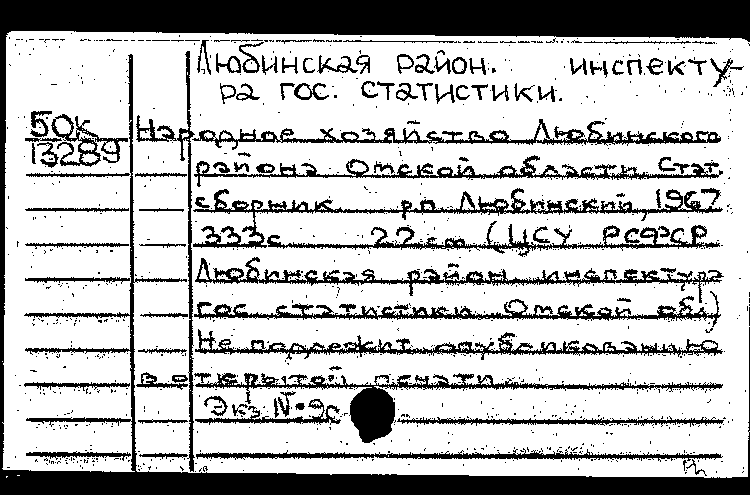 Любинская район. инспекту-
ра гос. статистики.
50к
13289
Народное хозяйство Любинского
района Омской области Стат.
сборник рп Любинский, 1967
333с 22 см (ЦСУ РСФСР
Любинская район инспектура
гос статистики Омской обл)
Не подлежит опубликованию
в открытой печати
Экз №